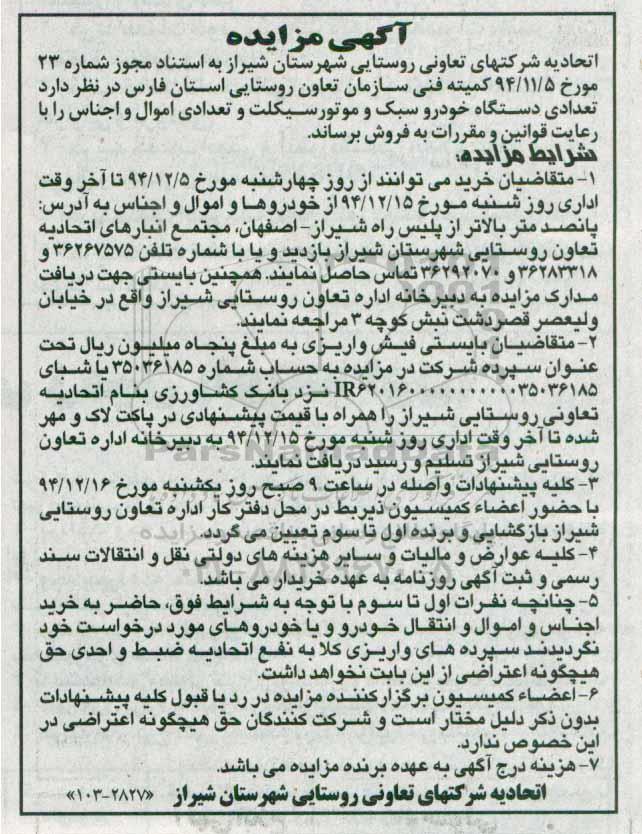 آگهی مزایده
اتحادیه شرکتهای تعاونی روستایی شهرستان شیراز به استناد مجوز شماره ۲۳
مورخ ۹۴/۱۱/۵ کمیته فنی سازمان تعاون روستایی استان فارس در نظر دارد
تعدادی دستگاه خودرو سبک و موتورسیکلت و تعدادی اموال و اجناس را با
رعایت قوانین و مقررات به فروش برساند.
شرایط مزایده:
۱- متقاضیان خرید می توانند از روز چهارشنبه مورخ ۹۴/۱۲/۵ تا آخر وقت
اداری روز شنبه مورخ ۹۴/۱۲/۱۵ از خودروها و اموال و اجناس به آدرس:
پانصد متر بالاتر از پلیس راه شیراز- اصفهان، مجتمع انبارهای اتحادیه
تعاون روستایی شهرستان شیراز بازدید و یا با شماره تلفن ۳۶۲۶۷۵۷۵ و
۳۶۲۸۳۳۱۸ و ۳۶۲۹۲۰۷۰ تماس حاصل نمایند. همچنین بایستی جهت دریافت
مدارک مزایده به دبیرخانه اداره تعاون روستایی شیراز واقع در خیابان
ولیعصر قصردشت نبش کوچه ۳ مراجعه نمایند.
۲- متقاضیان بایستی فیش واریزی به مبلغ پنجاه میلیون ریال تحت
عنوان سپرده شرکت در مزایده به حساب شماره ۳۵۰۳۶۱۸۵ یا شبای
IR۶۲۰۱۶۰۰۰۰۰۰۰۰۰۰۰۳۵۰۳۶۱۸۵ نزد بانک کشاورزی بنام اتحادیه
تعاونی روستایی شیراز را همراه با قیمت پیشنهادی در پاکت لاک و مهر
شده تا آخر وقت اداری روز شنبه مورخ ۹۴/۱۲/۱۵ به دبیرخانه اداره تعاون
روستایی شیراز تسلیم و رسید دریافت نمایند.
۳- کلیه پیشنهادات واصله در ساعت ۹ صبح روز یکشنبه مورخ ۹۴/۱۲/۱۶
با حضور اعضاء کمیسیون ذیربط در محل دفتر کار اداره تعاون روستایی
شیراز بازگشایی و برنده اول تا سوم تعیین می گردد.
۴- کلیه عوارض و مالیات و سایر هزینه های دولتی نقل و انتقالات سند
رسمی و ثبت آگهی روزنامه به عهده خریدار می باشد.
۵- چنانچه نفرات اول تا سوم با توجه به شرایط فوق، حاضر به خرید
اجناس و اموال و انتقال خودرو و یا خودروهای مورد درخواست خود
نگردیدند سپرده های واریزی کلا به نفع اتحادیه ضبط و احدی حق
هیچگونه اعتراضی از این بابت نخواهد داشت.
۶- اعضاء کمیسیون برگزارکننده مزایده در رد یا قبول کلیه پیشنهادات
بدون ذکر دلیل مختار است و شرکت کنندگان حق هیچگونه اعتراضی در
این خصوص ندارد.
۷- هزینه درج آگهی به عهده برنده مزایده می باشد.
اتحادیه شرکتهای تعاونی روستایی شهرستان شیراز «۱۰۳-۲۸۲۷»
ParsNamadData